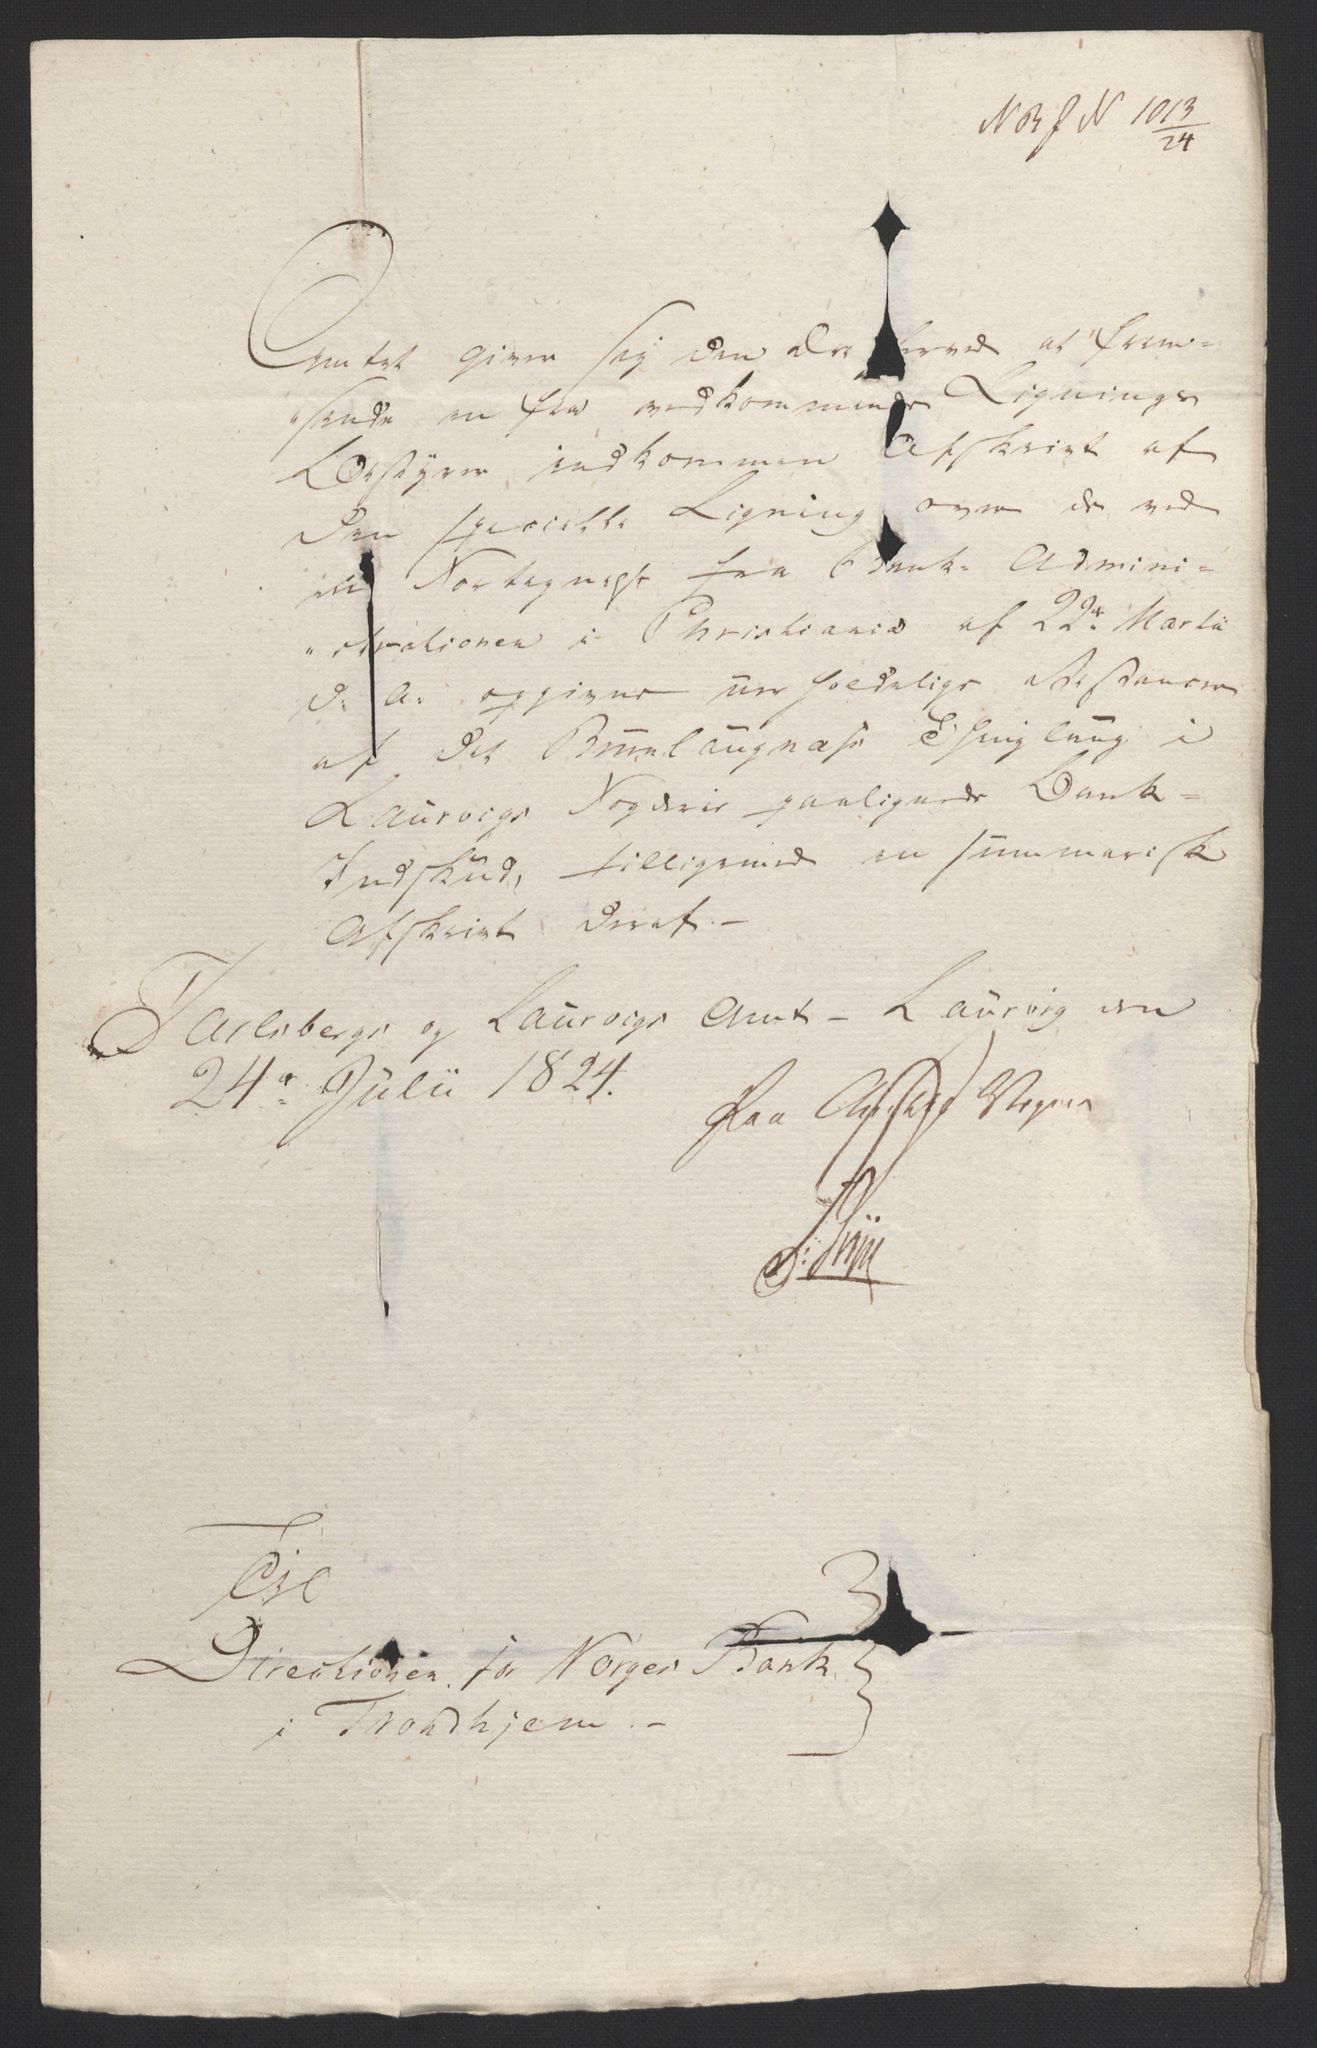 NB J N 1013/24
Amtet giver sig den Ære herved at frem-
sende en fra vedkommende Lignings
Bestyrer indkommen Afskrivt af
den specielle Ligning over de ved
en Fortegnelse fra Bank-Admini-
stration i Christiania af 22de Martii
d. A. opgivne uerholdelige Restancer
af det Brunlaugnæss Thinglaug i
Laurvigs Fogderie paalignede Bank-
Indskud, tilligemed en summarisk
Afskrivt deraf.-
Jarlsbergs og Laurvigs Amt - Laurvig den
24de Julii 1824.
Paa Amtets Vegne
Til
Directionen for Norges Bank
i Trondhjem.-